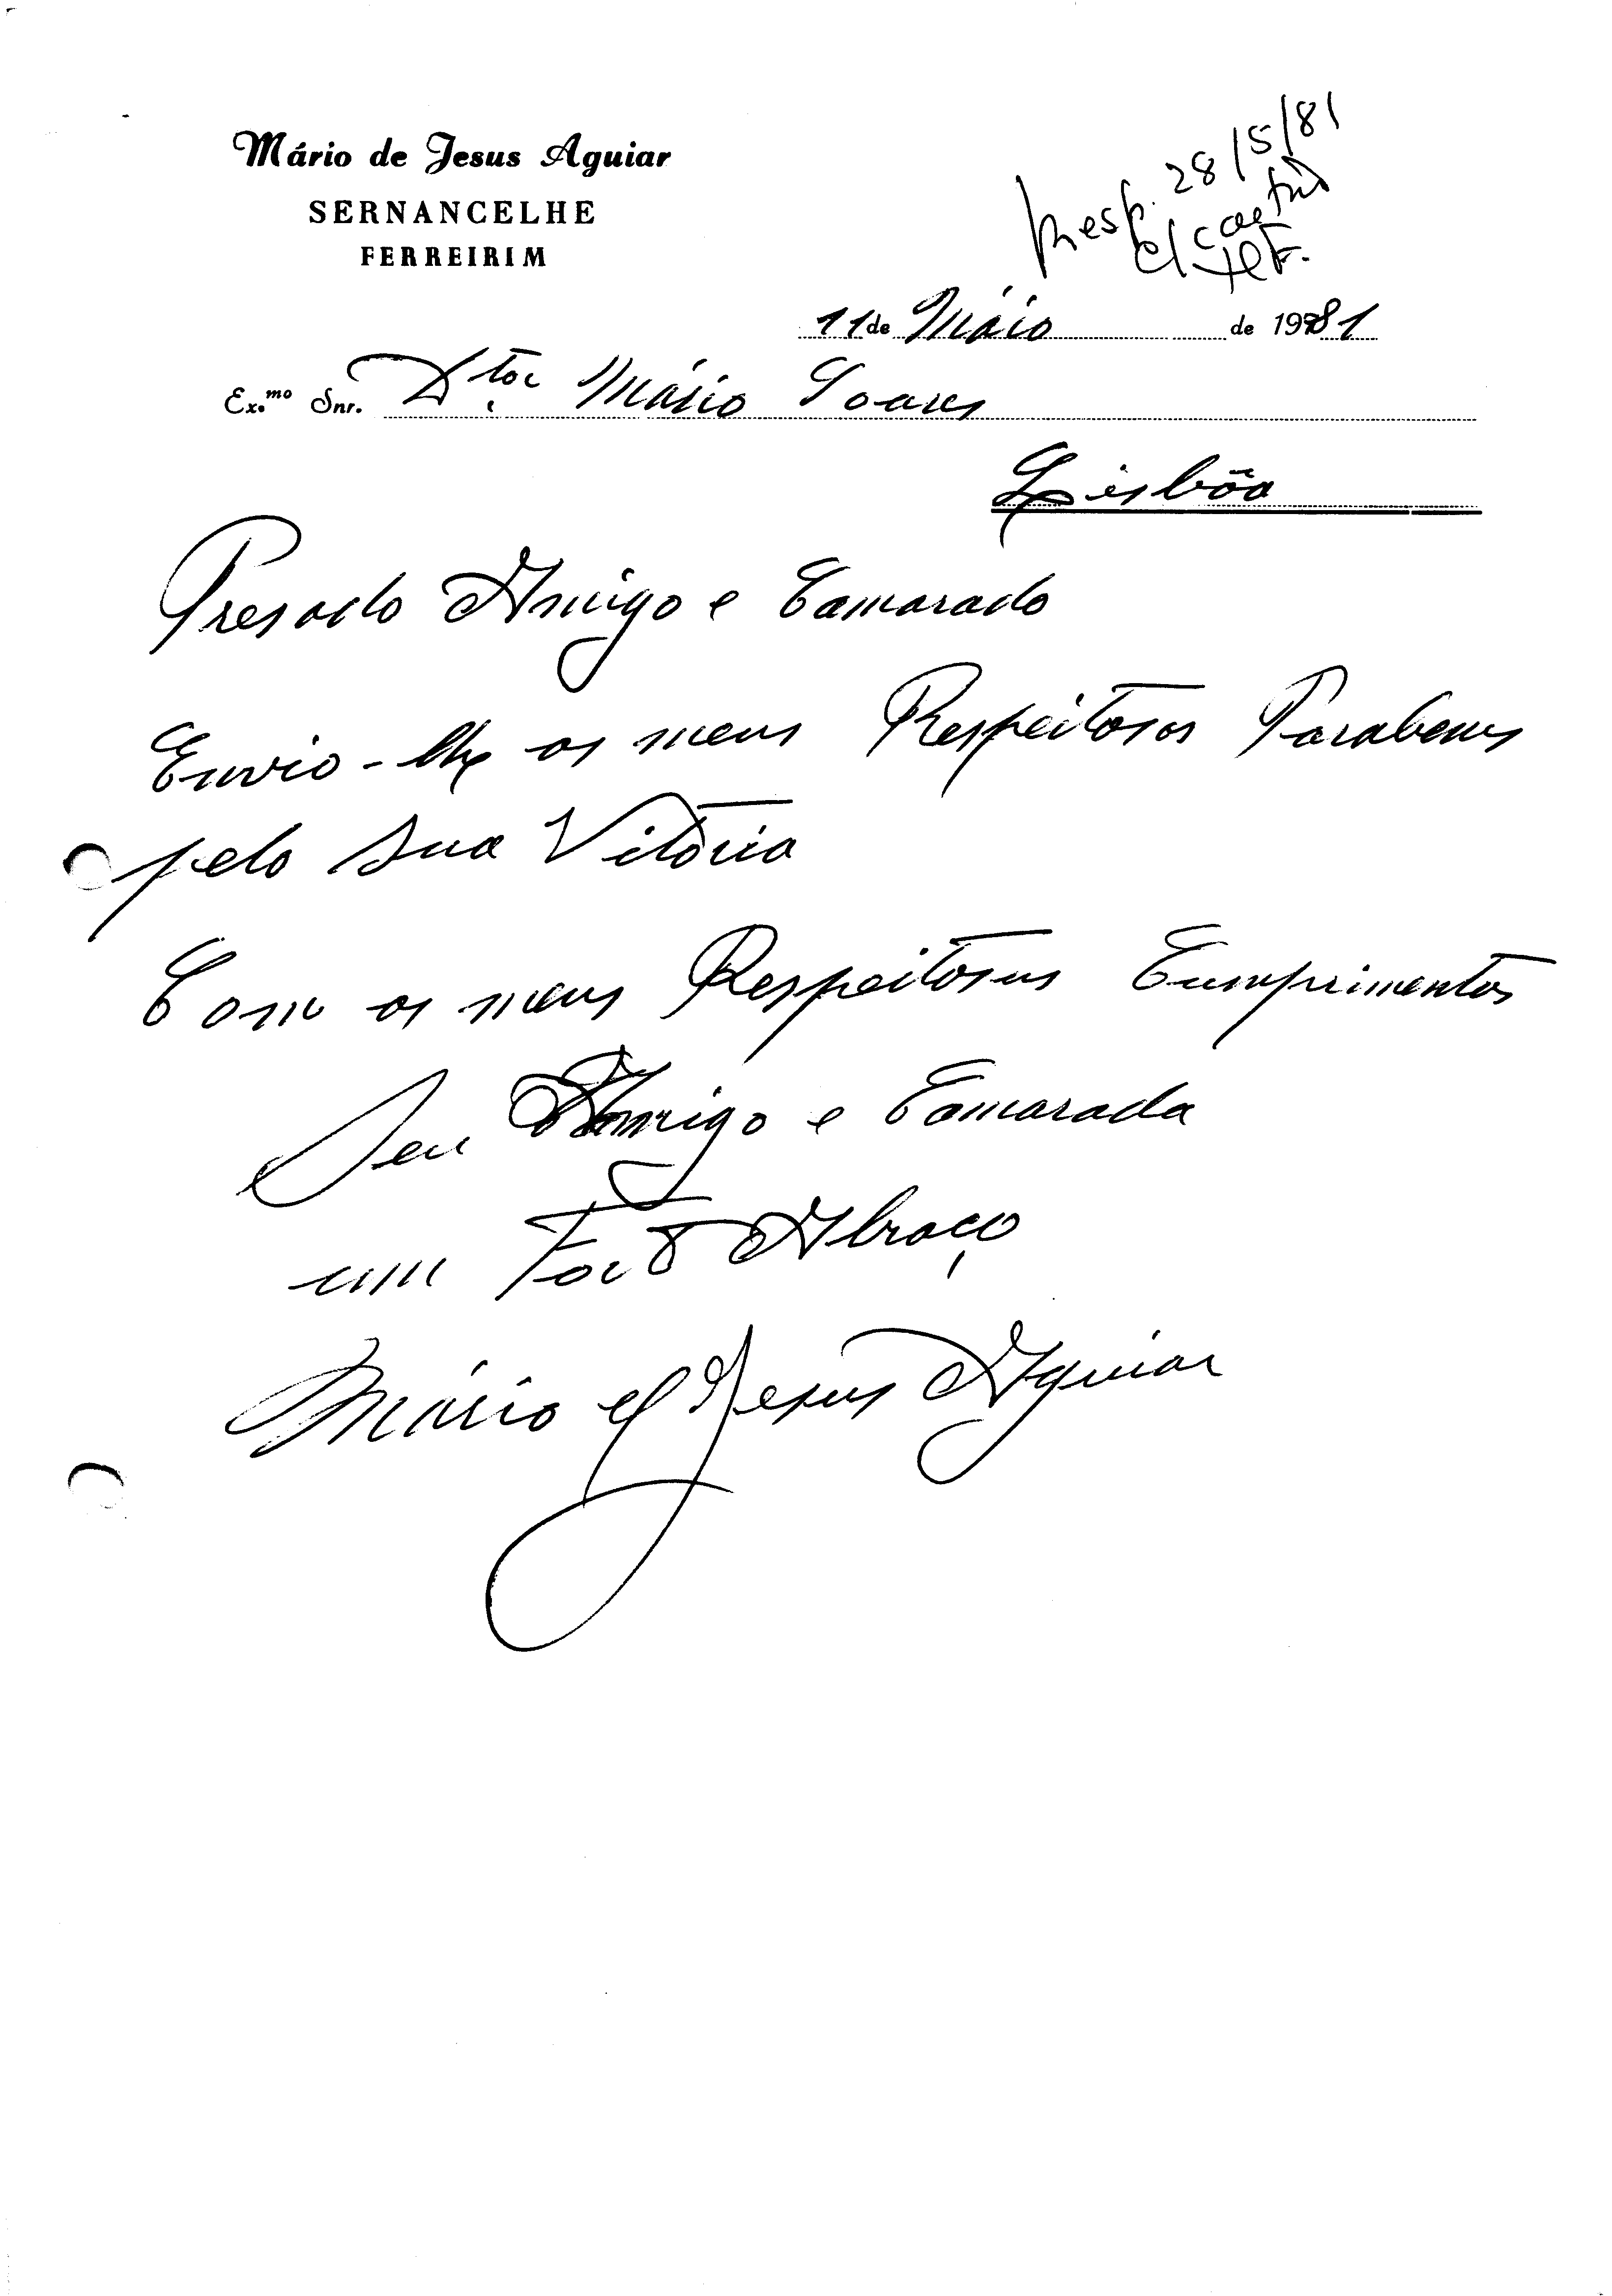 Mário de Jesus Aguiar
SERNANCELHE
FERREIRIM
Resp. 28/5/81
c/ cartão
11 de Máio de 1981
Ex.mo Snr. Dtor Mário Soares
Lisbôa
Presado Amigo e Camarada
Envio-lhe os meus Respeitosos Parabens
pela sua Vitória
Com os meus Respeitosos Cumprimentos
Seu Amigo e Camarada
um Forte Abraço
Mário d Jesus Aguiar